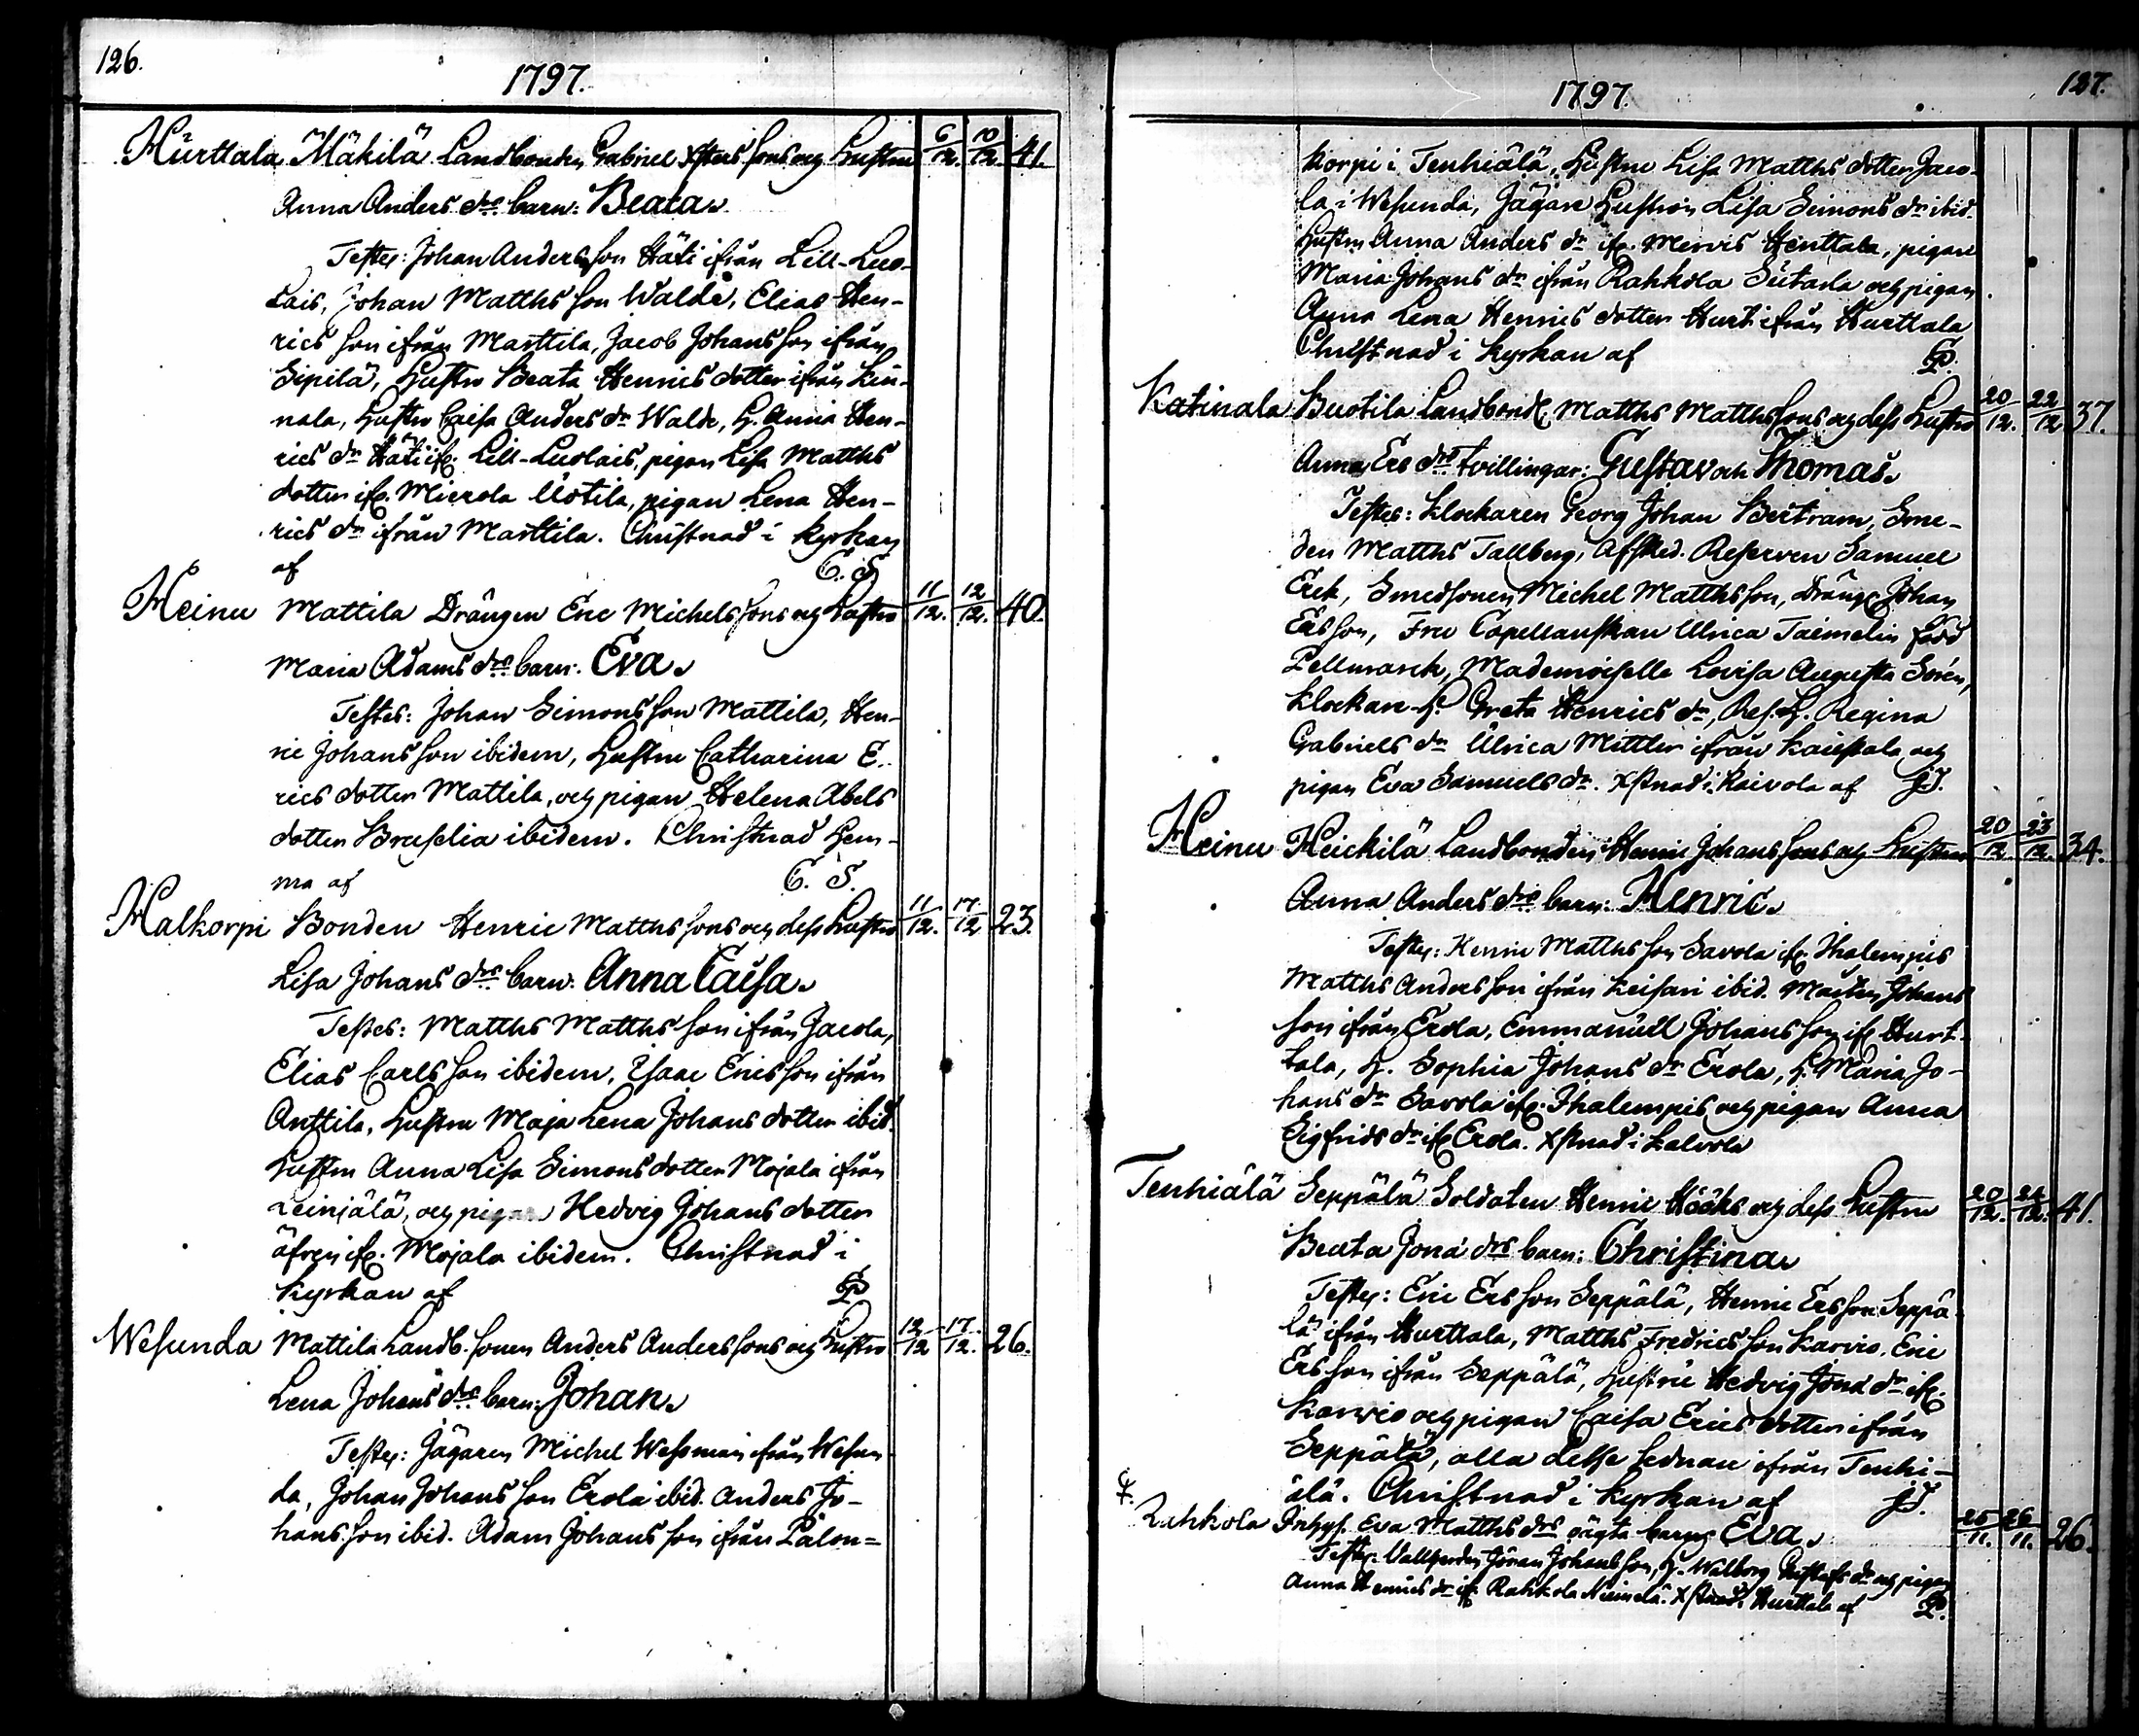 126.
1797.
Hurttala Mäkilä Landbonden Gabriel Xsters sons och Hustrus 6/12. 10/12. 41.
Anna Anders drs barn: Beata.
Testes: Johan Anders son Häti ifrån Lill-Luo-
lais, Johan Matths son Walde, Elias Hen-
rics son ifrån Marttila, Jacob Johans son ifrån
Sipilä, Hustru Beata Henrics dotter ifrån Kin-
nala, Hustru Caisa Anders dr Walde, H. Anna Hen-
rics dr Häti ifr. Lill-Luolais, pigan Lisa Matths
dotter ifr. Mierola Uotila, pigan Lena Hen-
rics dr ifrån Marttila. Christnad i Kyrkan
af C. S.
Heinu Mattila Drängen Eric Michels sons och Hustru 11/12. 12/12. 40.
Maria Adams drs barn: Eva.
Testes: Johan Simons son Mattila, Hen-
ric Johans son ibidem, Hustru Catharina E-
rics dotter Mattila, och pigan Helena Abels
dotter Bruselia ibidem. Christnad hem-
ma af C. S.
Halkorpi Bonden Henric Matths sons och dess Hustru 11/12. 17/12 23.
Lisa Johans drs barn: Anna Caisa.
Testes: Matths Matths son ifrån Jacola,
Elias Carls son ibidem, Isaac Erics son ifrån
Anttila, Hustru Maja Lena Johans dotter ibid.
Hustru Anna Lisa Simons dotter Mojala ifrån
Leinjälä, och pigan Hedvig Johans dotter
äfven ifr. Mojala ibidem. Christnad i
Kyrkan af
Wesunda Mattila Landb. sonen Anders Anders sons och Hustru 12/12 17/12. 26.
Lena Johans drs barn: Johan.
Testes: Jägaren Michel Wessman ifrån Wesun-
da, Johan Johans son Erola ibid. Anders Jo-
hans son ibid. Adam Johans son ifrån Palon=
1797.
127.
korpi i Tenhiälä, Hustru Lisa Matths dotter Jaco-
la i Wesunda, Jägare Hustrun Lisa Simons dr ibid.
Hustru Anna Anders dr ifr. Mervis Henttala, pigan
Maria Johans dr ifrån Rahkola Sutarla och pigan
Anna Lena Henrics dotter Hurti ifrån Hurttala
Christnad i Kyrkan af
Katinala Buotila Landbond. Matths Matths sons och dess Hustru 20/12. 22/12 37.
Anna Ers drs tvillingar: Gustav och Thomas.
Testes: Klockaren Georg Johan Bertram, Sme-
den Matths Tallberg, Afsked. Reserven Samuel
Erek, Smedsonen Michel Matths son, Dräng. Johan
Ers son, Fru Capellanskan Ulrica Taimelin född
Pellmarck, Mademoiselle Lovisa Augusta Sorén,
Klockare H. Greta Henrics dr, Res. H. Regina
Gabriels dr Ulrica Mittler ifrån och
pigan Eva Samuels dr. Xstnad i Kaivola af
Heinu Heickilä Landbonden Henric Johans sons och Hustrus 20/12. 23/12. 34.
Anna Anders drs barn: Henric.
Testes: Henric Matths son Savola ifr. Ihalempis
Matths Anders son ifrån Keisari ibid. Mårten Johans
son ifrån Erola, Emmanuel Johans son ifr. Hurt-
tala, H. Sophia Johans dr Erola, H. Maria Jo-
hans dr Savola ifr. Ihalempis och pigan Anna
Sigfrids dr ifr Erola. Xstnad i Kalvola
Tenhiälä Seppälä Soldaten Henric Hööks och dess Hustru 20/12. 24/12. 41.
Beata Jona drs barn: Christina.
Testes: Eric Ers son Seppälä, Henric Ers son Seppä-
lä ifrån Hurttala, Matths Fredrics son Karvio, Eric
Ers son ifrån Seppälä, Hustru Hedvig Jona dr ifr.
Karvio och pigan Caisa Erics dotter ifrån
Seppälä, alla desse sednare ifrån Tenhi-
älä. Christnad i Kyrkan af
Rahkola Inhys. Eva Matths drs oägta barn Eva. 25/11. 26/11. 26.
Testes: Johans son, H. Walborg Gustafs dr och pigan
Anna Henrics dr ifr Rahkola Niemelä. Xstnad i Hurttala af